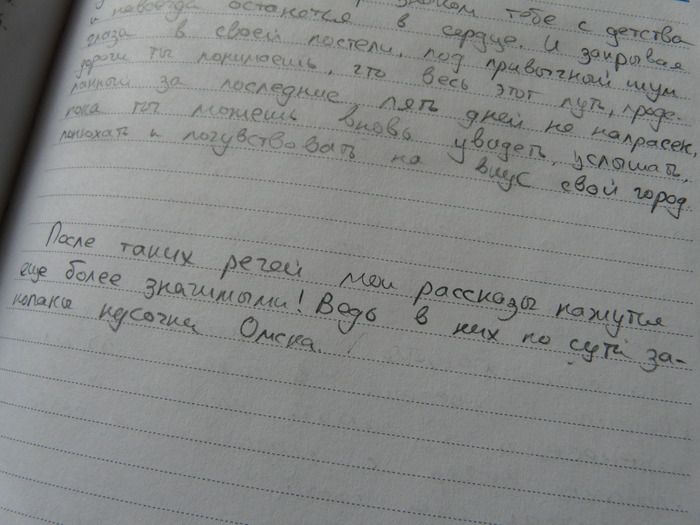 знаком тебе с детства
и навсегда останется в сердце. И закрывая
глаза в своей постели, под привычный шум
дороги ты понимаешь, что весь этот путь, проде-
ланный за последние пять дней не напрасен,
пока ты можешь вновь увидеть, услышать,
понюхать и почувствовать на вкус свой город.
После таких речей мои рассказы кажутся
еще более значимыми! Ведь в них по сути за-
копаны кусочки Омска.